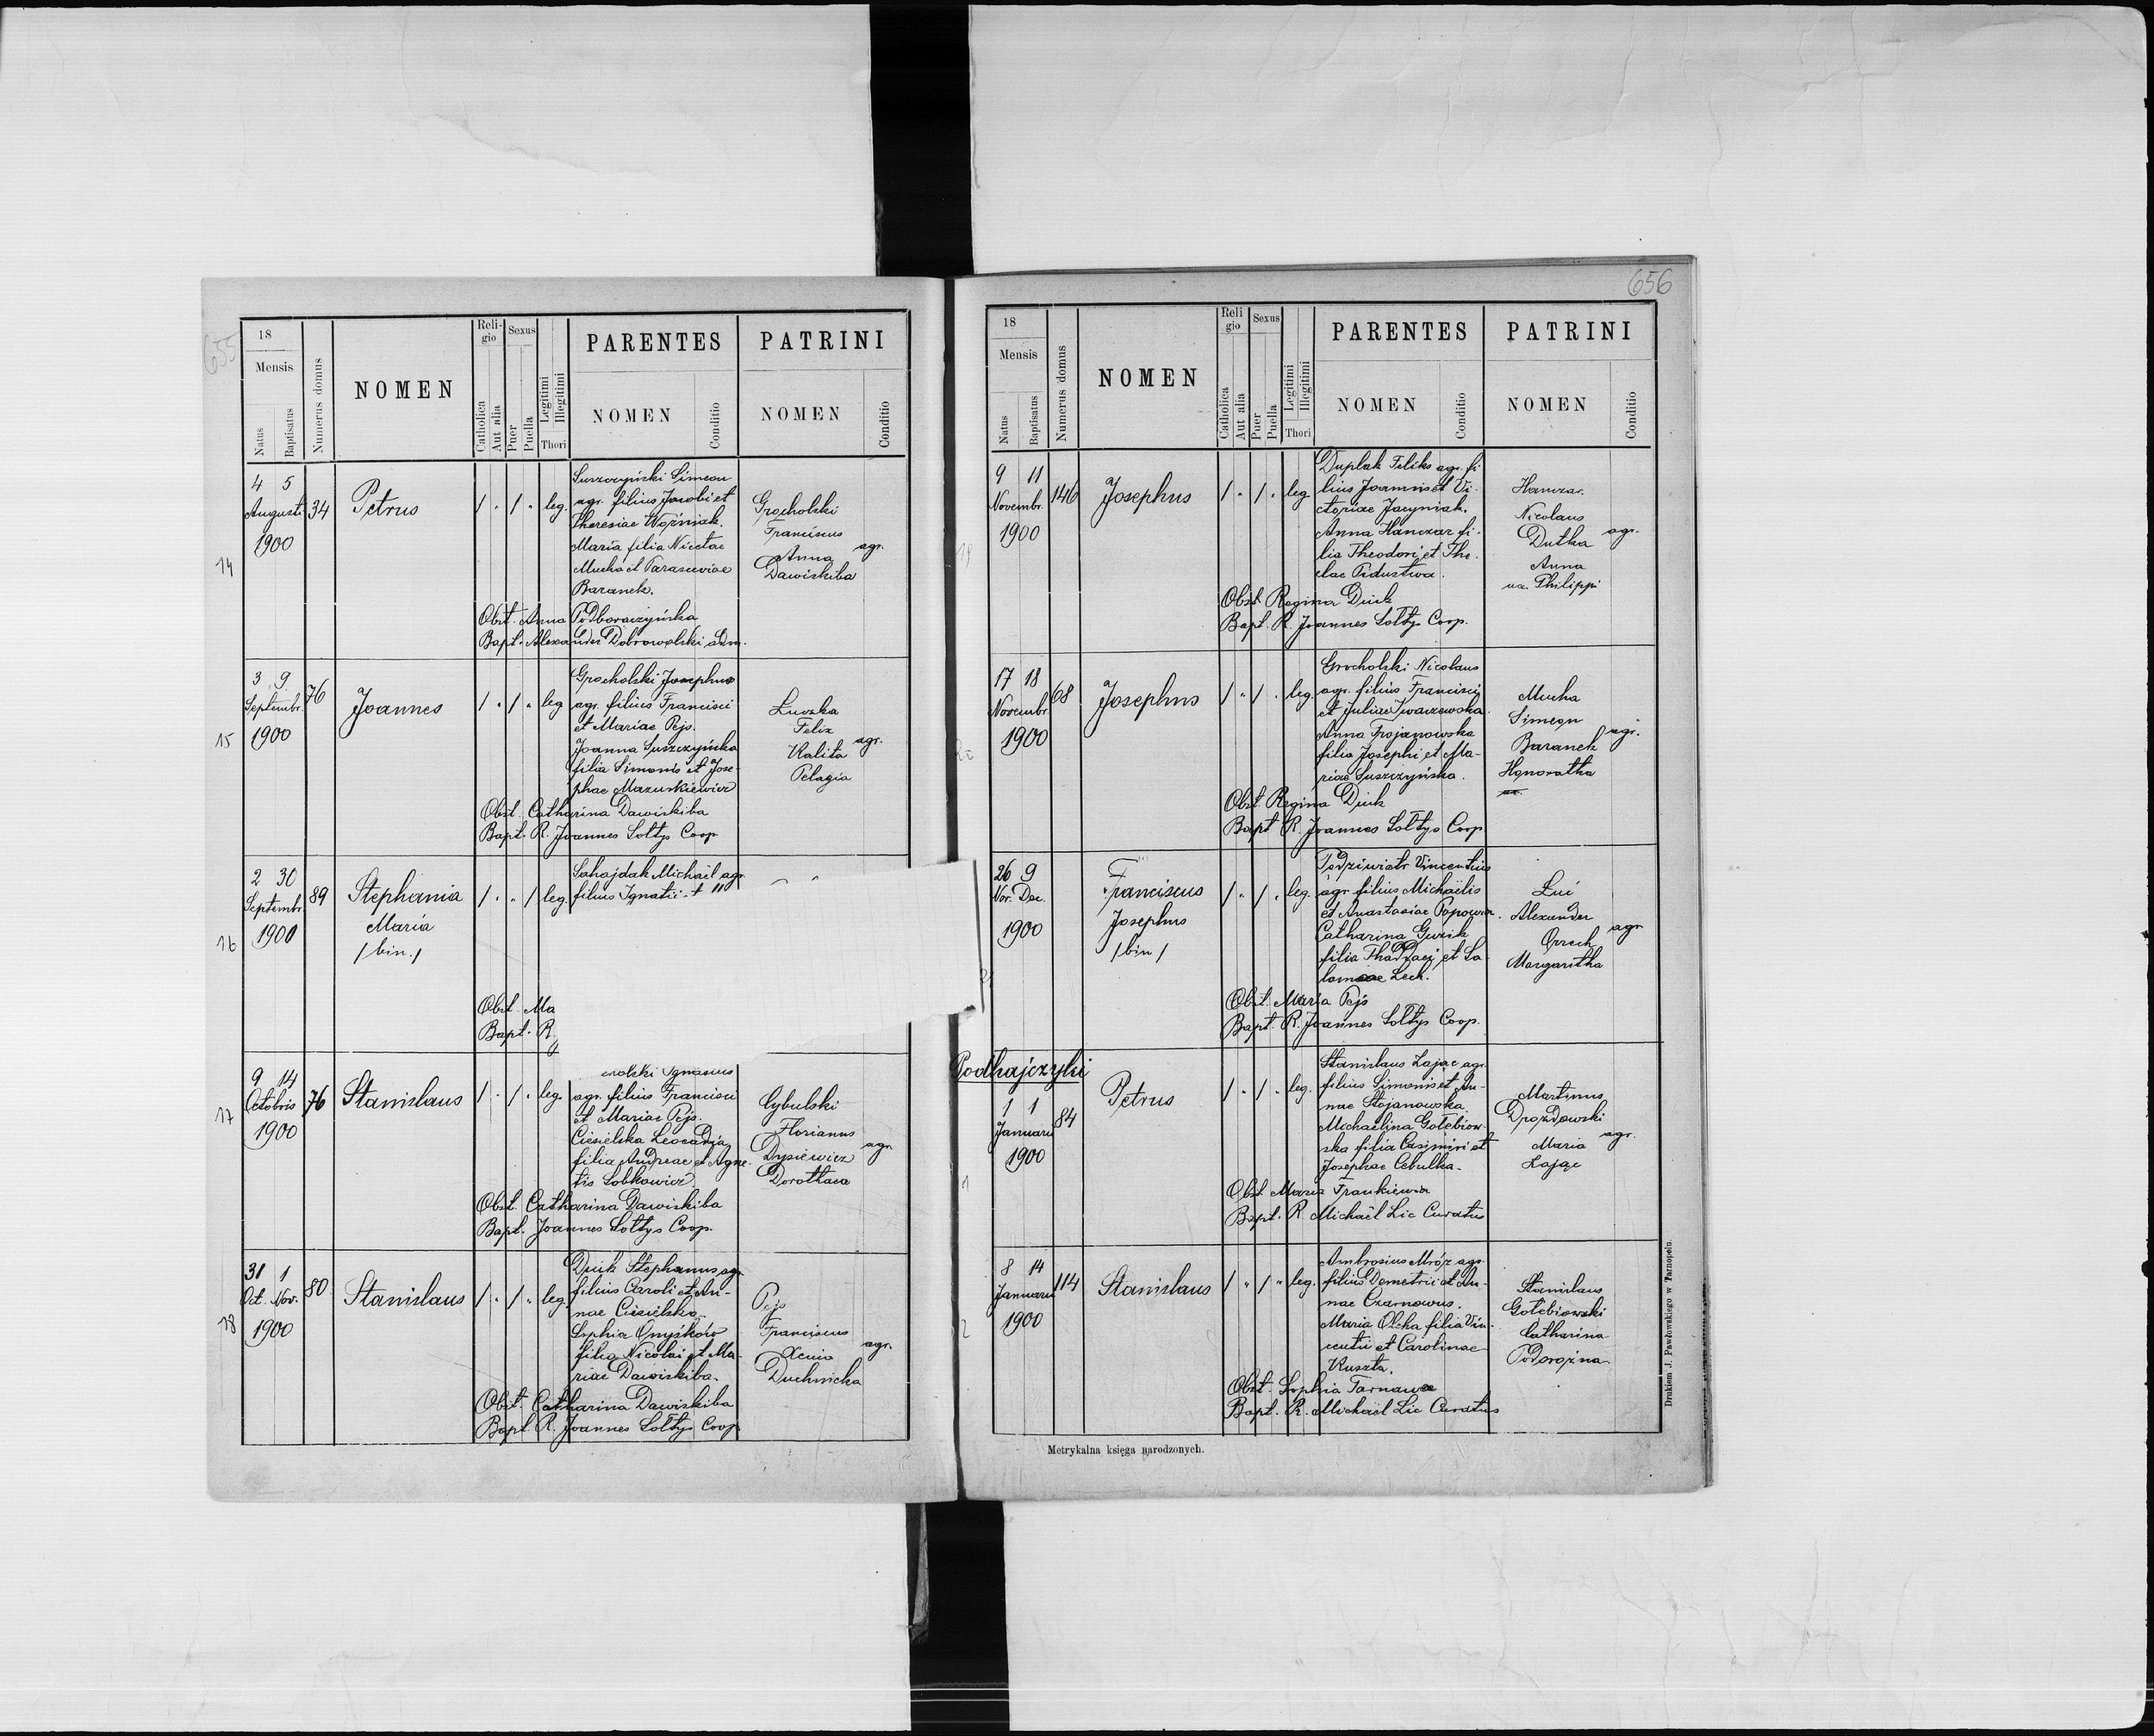 655
18
Mensis
Natus
Baptisatus
Numerus domus
NOMEN
Reli-
gio
Catholica
Aut alia
Sexus
Puer
Puella
Legitimi
Illegitimi
Thori
PARENTES
NOMEN
Conditio
PATRINI
NOMEN
Conditio
14
4 5
Augusti
1900
34
Petrus
/ " / " leg.
Suszczyński Simeon
agr. filius Jacobi et
Theresiae Woźniak.
Maria filia Nicetae
Mucha et Parasceviae
Baranek.
Grocholski
Franciscus
Anna
Dawiskiba
agr.
Obst. Anna Podhoraczyńska
Bapt. Alexander Dobrowolski Adm.
15
3 9
Septembr.
1900
76
Joannes
/ " / " leg
Grocholski Josephus
agr. filius Francisci
et Mariae Pejs.
Joanna Suszczyńska
filia Simonis et Jose-
phae Mazurkiewicz
Luszka
Felix
Kalita
Pelagia
agr.
Obst. Catharina Dawiskiba
Bapt. R. Joannes Sołtys Coop.
16
2 30
Septembr.
1900
89
Stephania
Maria
/ bin. /
/ " " / leg.
Sahajdak Michaël agr
filius Ignatii
Obst. Ma
Bapt. R.
17
9 14
Octobris
1900
76
Stanislaus
/ " / " leg.
Ignatius
agr. filius Francisci
et Mariae Pejs.
Ciesielska Leocadia
filia Andreae et Agne-
tis Sobkowicz.
Cybulski
Florianus
Dysiewicz
Dorothaea
agr
Obst. Catharina Dawiskiba
Bapt. Joannes Sołtys Coop.
18
31 1
Oct. Nov.
1900
80
Stanislaus
/ " / " leg.
Duik Stephanus agr
filius Caroli et An-
nae Ciesielska
Sophia Onyśków
filia Nicolai et Ma-
riae Dawiskiba.
Pejs
Franciscus
Xenia
Duchnicka
agr.
Obst. Catharina Dawiskiba
Bapt. R. Joannes Sołtys Coop
656
18
Mensis
Natus
Baptisatus
Numerus domus
NOMEN
Reli
gio
Catholica
Aut alia
Sexus
Puer
Puella
Legitimi
Illegitimi
Thori
PARENTES
NOMEN
Conditio
PATRINI
NOMEN
Conditio
9 11
Novembr.
1900
146
Josephus
/ " / " leg
Duplak Feliks agr. fi
lius Joannis et Vi-
ctoriae Jacyniak.
Anna Hanczar fi-
lia Theodori et The-
clae Pidustwa.
Hanczar
Nicolaus
Dutka
Anna
ux. Philippi
agr.
Obst. Regina Duik
Bapt. R. Joannes Sołtys Coop.
17 18
Novembr.
1900
68
Josephus
/ " / " leg.
Grocholski Nicolaus
agr. filius Francisci
et Juliae Iwaczewska
Anna Trojanowska
filia Josephi et Ma-
riae Suszczyńska.
Mucha
Simeon
Baranek
Honoratha
agr.
Obst. Regina Duik
Bapt. R. Joannes Sołtys Coop
26 9
Nov. Dec.
1900
Franciscus
Josephus
/ bin /
/ " / " leg.
Podziwiatr Vincentius
agr filius Michaëlis
et Anastasiae Popowicz.
Catharina Guzik
filia Thaddaei et Sa-
lomeae Lech.
Lui
Alexander
Orzech
Margaritha
agr
Obst. Maria Pejs
Bapt. R. Joannes Sołtys Coop.
Podhajczyki
1
1 1
Januarii
1900
84
Petrus
/ " / " leg.
Stanislaus Zając agr.
filius Simonis et An-
nae Stojanowska.
Michaelina Gołębiow-
ska filia Casimiri et
Josephae Cebulka.
Martinus
Drozdowski
Maria
Zając
agr.
Obst. Maria Frankiewicz
Bapt. R. Michaël Lic Curatus
2
8 14
Januarii
1900
114
Stanislaus
/ " / " leg.
Ambrosius Mróz agr.
filius Demetrii et An-
nae Czarnowus.
Maria Olcha filia Vin-
centii et Carolinae
Kuszta.
Stanislaus
Gołebiowski
Catharina
Podorożna
Obst. Sophia Tarnawa
Bapt. R. Michaël Lic Curatus
Metrykalna księga narodzonych.
Drukiem J. Pawłowskiego w Tarnopolu.